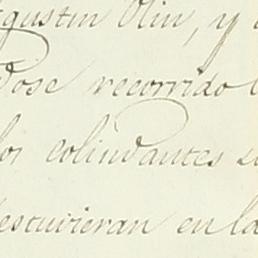 Agustin Olin, y
dose recorrido
los colindantes
estuvieran en la